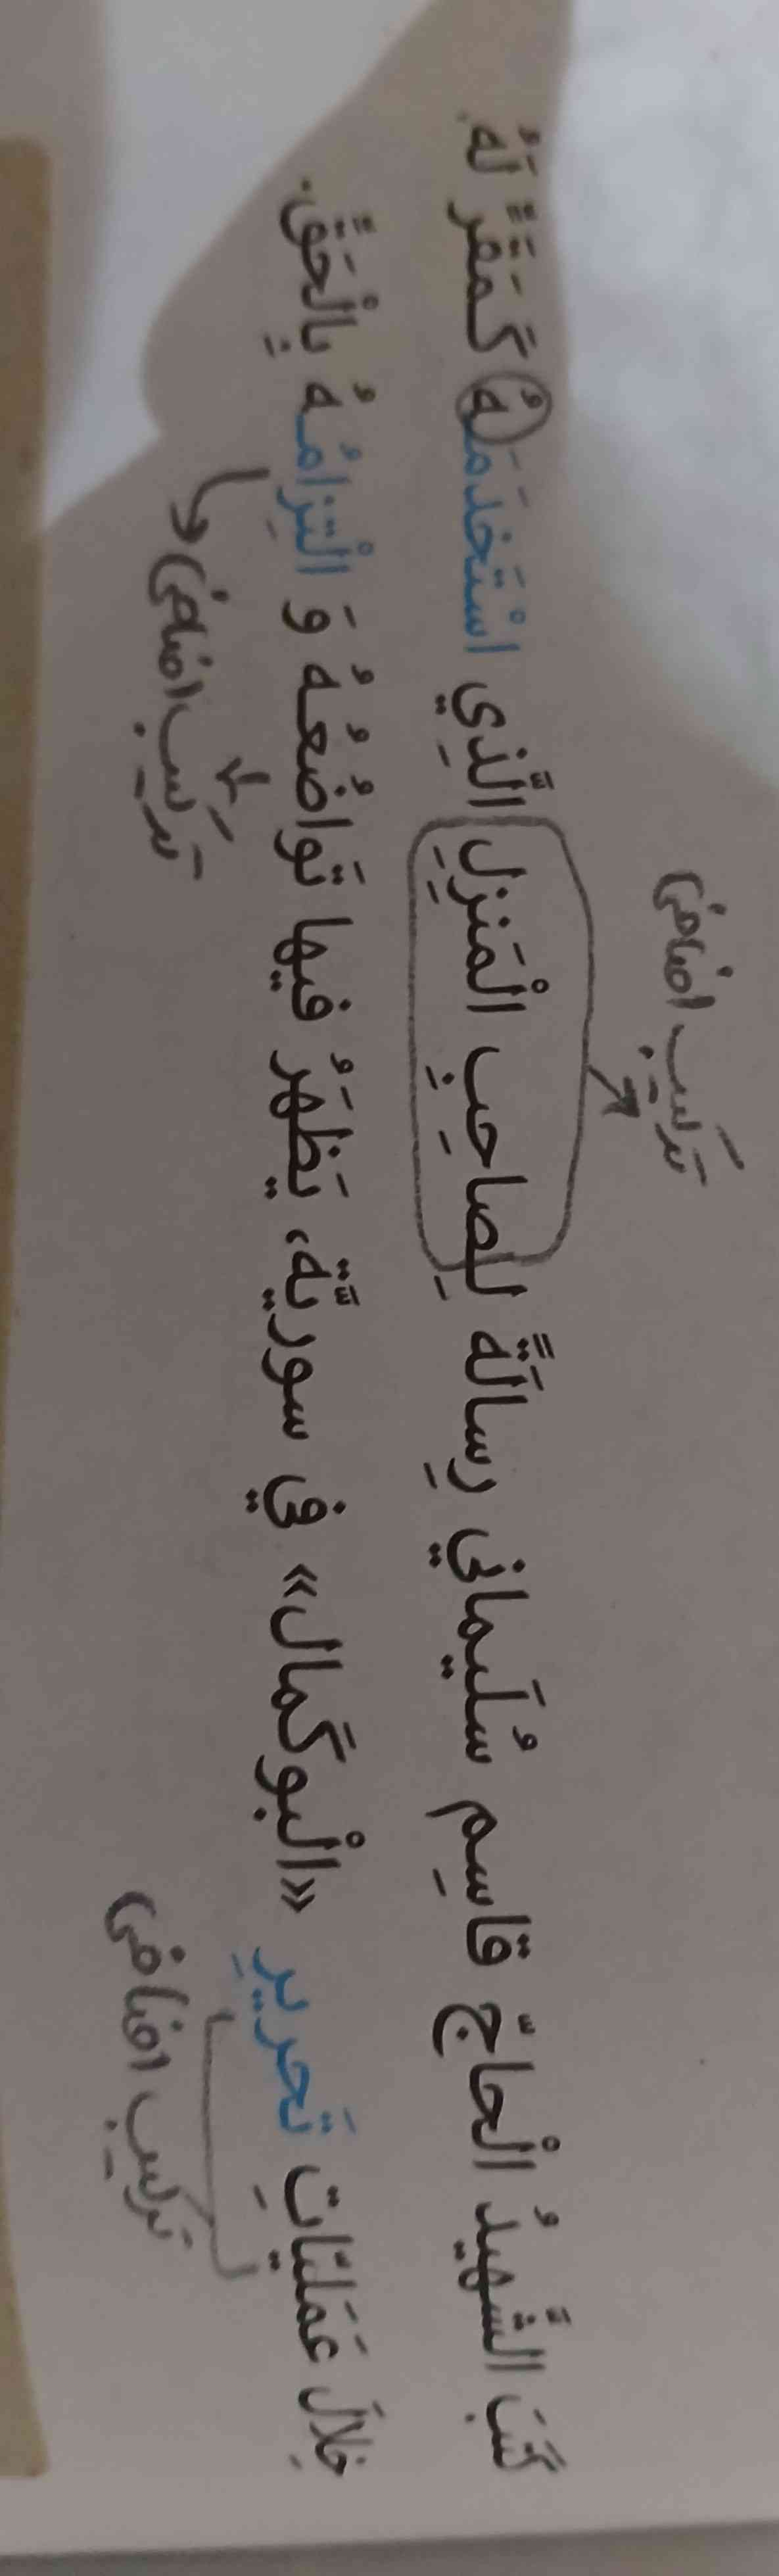 ترکیب اضافی
كَتَبَ الشَّهيدُ الْحاجّ قاسِم سُلَيماني رِسالَةً لِصاحِبِ الْمَنزِلِ الَّذِي اسْتَخدَمَهُ كَمَقَرٍّ لَهُ
خِلالَ عَمَليّاتِ تَحريرِ «الْبوكَمال» في سوريّة، يَظهَرُ فيها تَواضُعُهُ وَ الْتِزامُهُ بِالْحَقِّ.
ترکیب اضافی
ترکیب اضافی